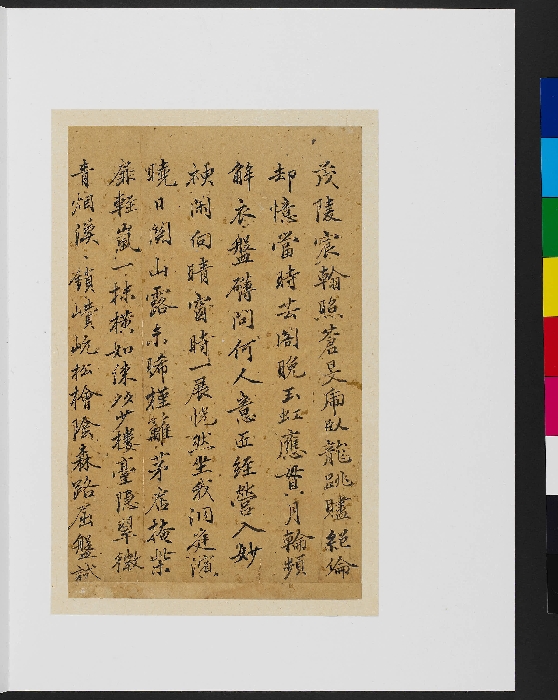 茂陵宸翰照蒼旻虎臥龍跳賸絕倫
却憶當時芸閣晚玉虹應貫月輪頻
解衣盤礴問何人意匠經營入妙
神閒向晴窗時一展恍然坐我洞庭濱
曉日關山露未晞槿籬茅店掩柴
扉輕嵐一抹橫如練多少樓臺隱翠微
青烟漠〻鎖崚屼松檜陰森路屈盤試